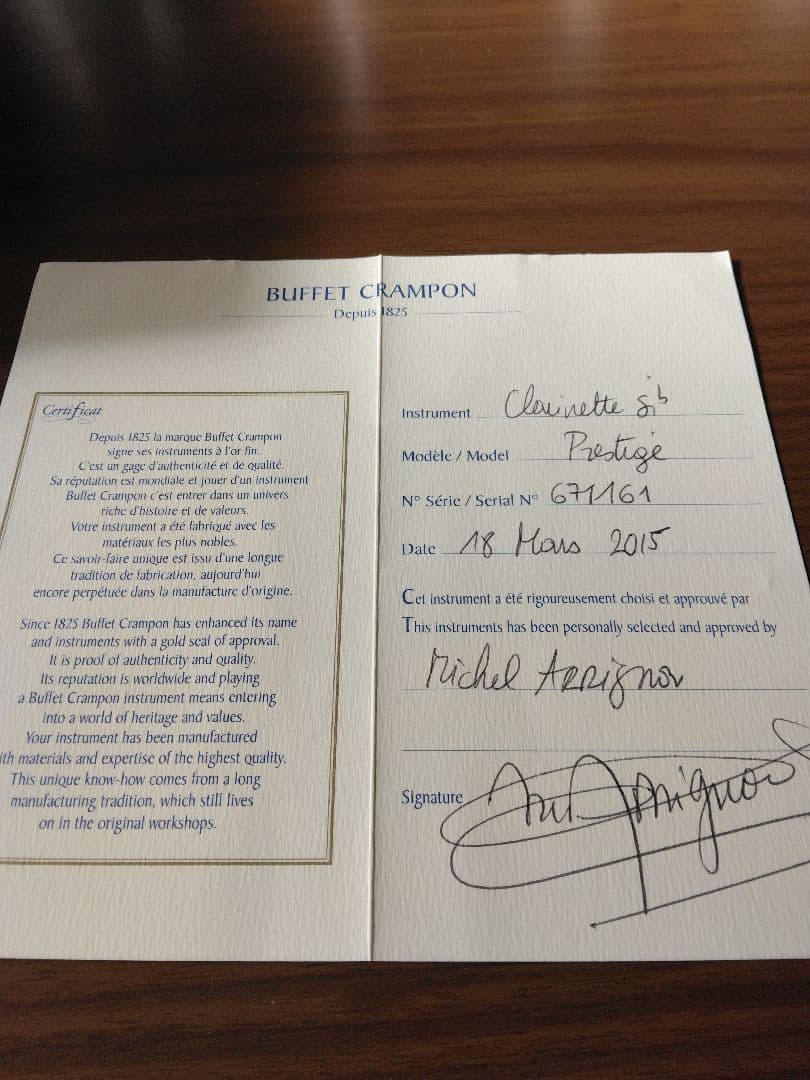 BUFFET CRAMPON
Depuis 1825
Certificat
Depuis 1825 la marque Buffet Crampon
signe ses instruments à l'or fin.
C'est un gage d'authenticité et de qualité.
Sa réputation est mondiale et jouer d'un instrument
Buffet Crampon c'est entrer dans un univers
riche d'histoire et de valeurs.
Votre instrument a été fabriqué avec les
matériaux les plus nobles.
Ce savoir-faire unique est issu d'une longue
tradition de fabrication, aujourd'hui
encore perpétuée dans la manufacture d'origine.
Since 1825 Buffet Crampon has enhanced its name
and instruments with a gold seal of approval.
It is proof of authenticity and quality.
Its reputation is worldwide and playing
a Buffet Crampon instrument means entering
into a world of heritage and values.
Your instrument has been manufactured
ith materials and expertise of the highest quality.
This unique know-how comes from a long
manufacturing tradition, which still lives
on in the original workshops.
Instrument Clarinette Sib
Modèle / Model Prestige
N° Série / Serial N° 671161
Date 18 Mars 2015
Cet instrument a été rigoureusement choisi et approuvé par
This instruments has been personally selected and approved by
Michel Arrignon
Signature Arrignon